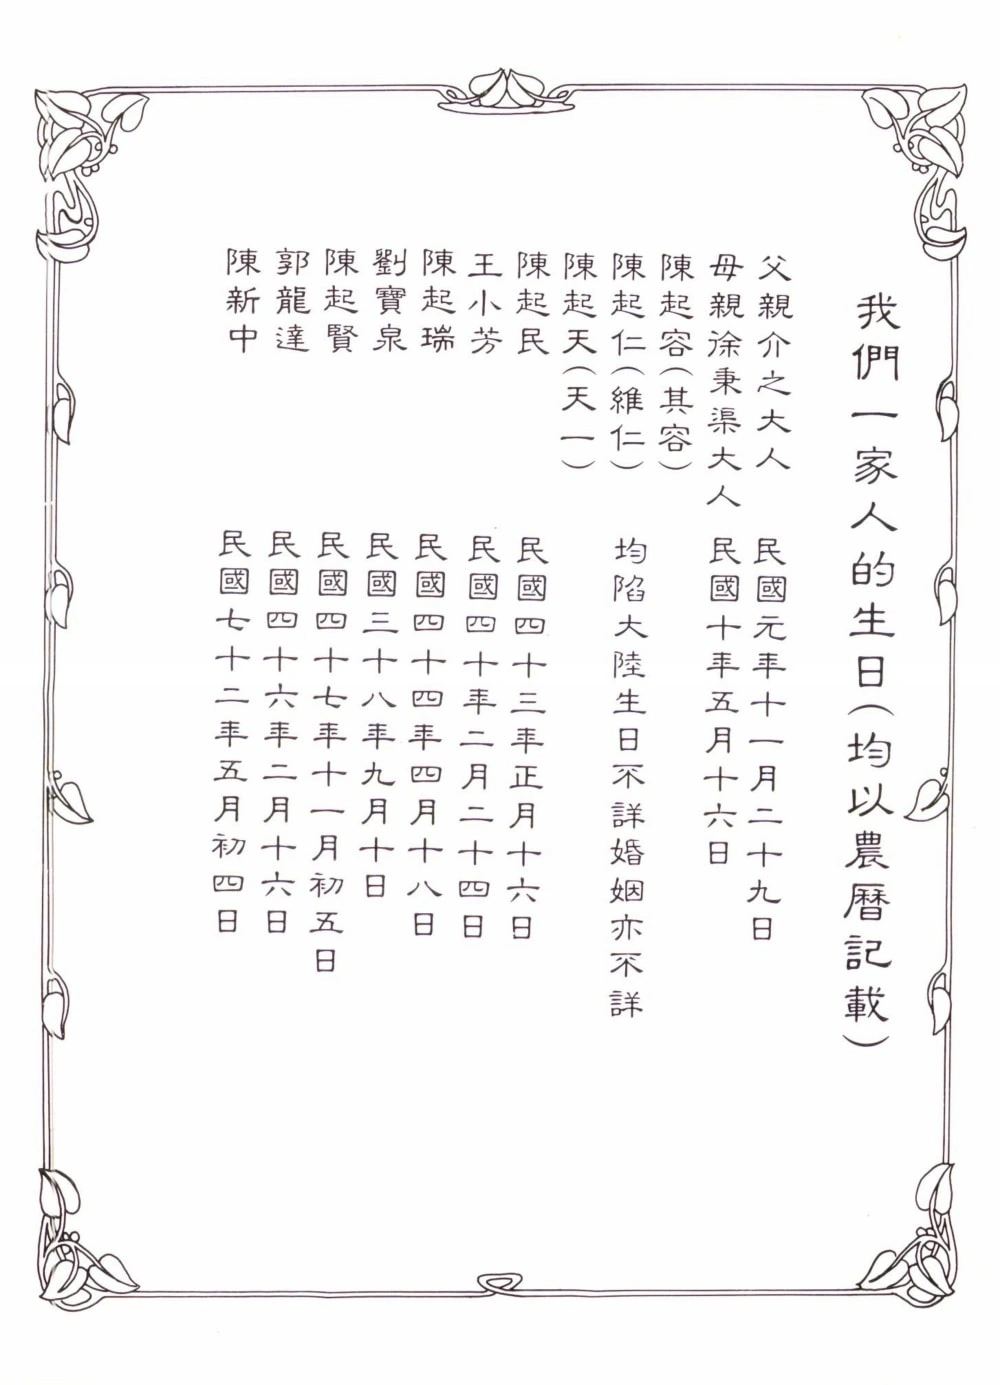 我們一家人的生日(均以農曆記載)
父親介之大人 民國元年十一月二十九日
母親徐秉渠大人 民國十年五月十六日
陳起容(其容)
陳起仁(維仁) 均陷大陸生日不詳婚姻亦不詳
陳起天(天一)
陳起民 民國四十三年正月十六日
王小芳 民國四十年二月二十四日
陳起瑞 民國四十四年四月十八日
劉寶泉 民國三十八年九月十日
陳起賢 民國四十七年十一月初五日
郭龍達 民國四十六年二月十六日
陳新中 民國七十二年五月初四日